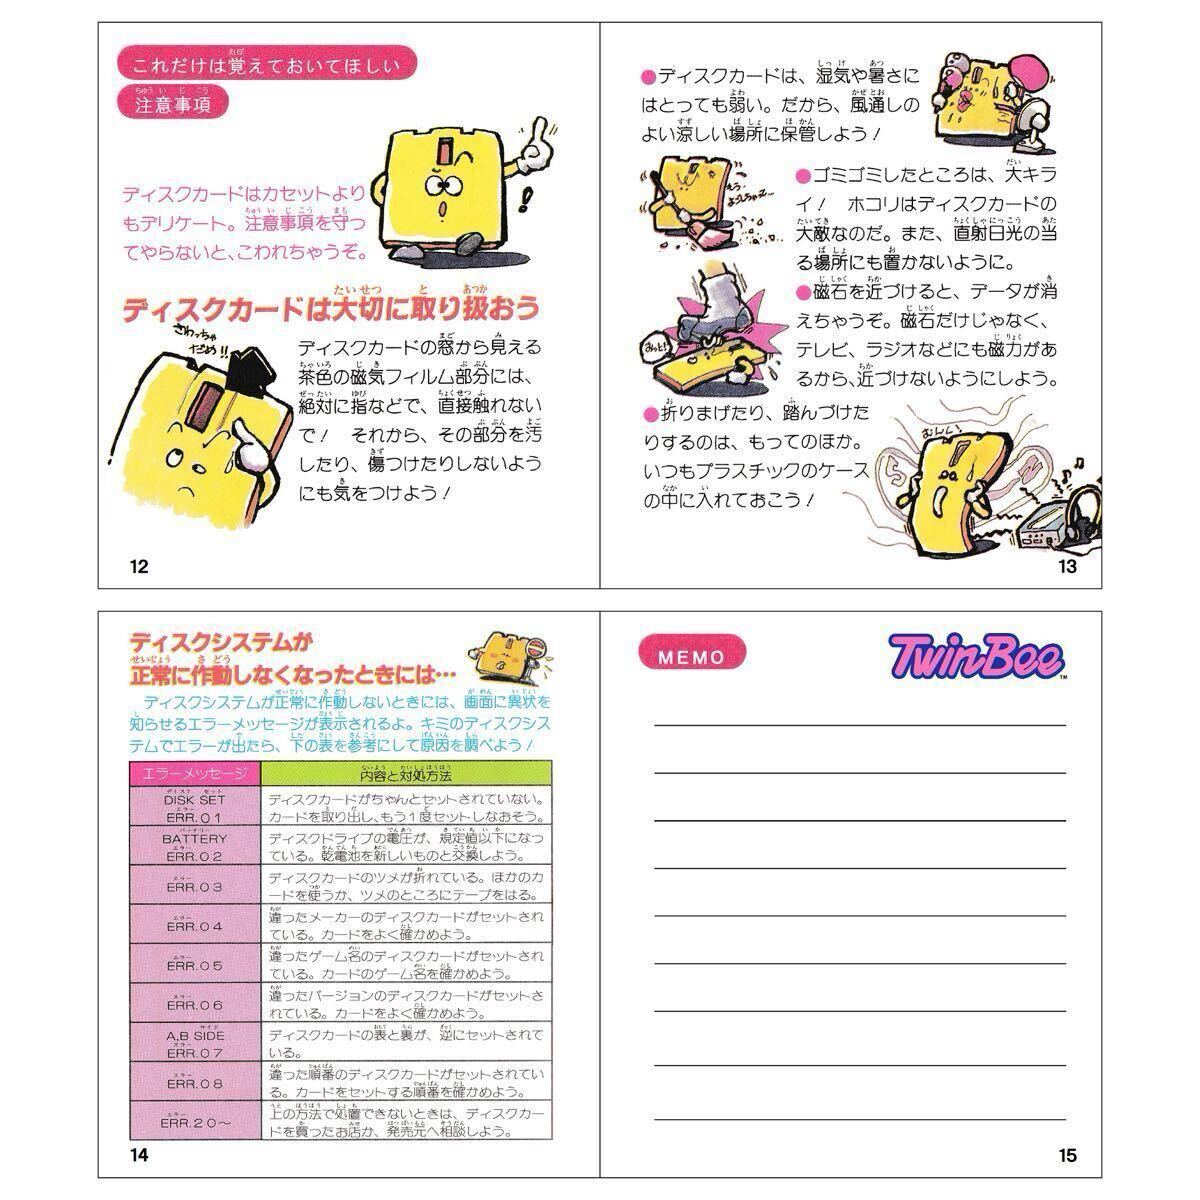 これだけは覚えておいてほしい
注意事項
ディスクカードはカセットより
もデリケート。注意事項を守っ
てやらないと、こわれちゃうぞ。
ディスクカードは大切に取り扱おう
さわっちゃ
だめ!!
ディスクカードの窓から見える
茶色の磁気フィルム部分には、
絶対に指などで、直接触れない
で! それから、その部分を汚
したり、傷つけたりしないよう
にも気をつけよう!
12
●ディスクカードは、湿気や暑さに
はとっても弱い。だから、風通しの
よい涼しい場所に保管しよう!
●ゴミゴミしたところは、大キラ
イ! ホコリはディスクカードの
大敵なのだ。また、直射日光の当
る場所にも置かないように。
●磁石を近づけると、データが消
えちゃうぞ。磁石だけじゃなく、
テレビ、ラジオなどにも磁力があ
るから、近づけないようにしよう。
おっと!
●折りまげたり、踏んづけた
りするのは、もってのほか。
いつもプラスチックのケース
の中に入れておこう!
むんい!
S
N
13
ディスクシステムが
正常に作動しなくなったときには…
ディスクシステムが正常に作動しないときには、画面に異状を
知らせるエラーメッセージが表示されるよ。キミのディスクシス
テムでエラーが出たら、下の表を参考にして原因を調べよう!
エラーメッセージ 内容と対処方法
DISK SET
ERR.01
ディスクカードがちゃんとセットされていない。
カードを取り出し、もう1度セットしなおそう。
BATTERY
ERR.02
ディスクドライブの電圧が、規定値以下になっ
ている。乾電池を新しいものと交換しよう。
ERR.03
ディスクカードのツメが折れている。ほかのカ
ードを使うか、ツメのところにテープをはる。
ERR.04
違ったメーカーのディスクカードがセットされ
ている。カードをよく確かめよう。
ERR.05
違ったゲーム名のディスクカードがセットされ
ている。カードのゲーム名を確かめよう。
ERR.06
違ったバージョンのディスクカードがセットさ
れている。カードをよく確かめよう。
A,B SIDE
ERR.07
ディスクカードの表と裏が、逆にセットされて
いる。
ERR.08
違った順番のディスクカードがセットされてい
る。カードをセットする順番を確かめよう。
ERR.20〜
上の方法で処置できないときは、ディスクカー
ドを買ったお店か、発売元へ相談しよう。
14
MEMO
TwinBee
TM
15